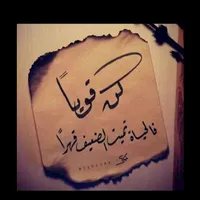 كن قوياً
فالحياة تميت الضعيف قهراً